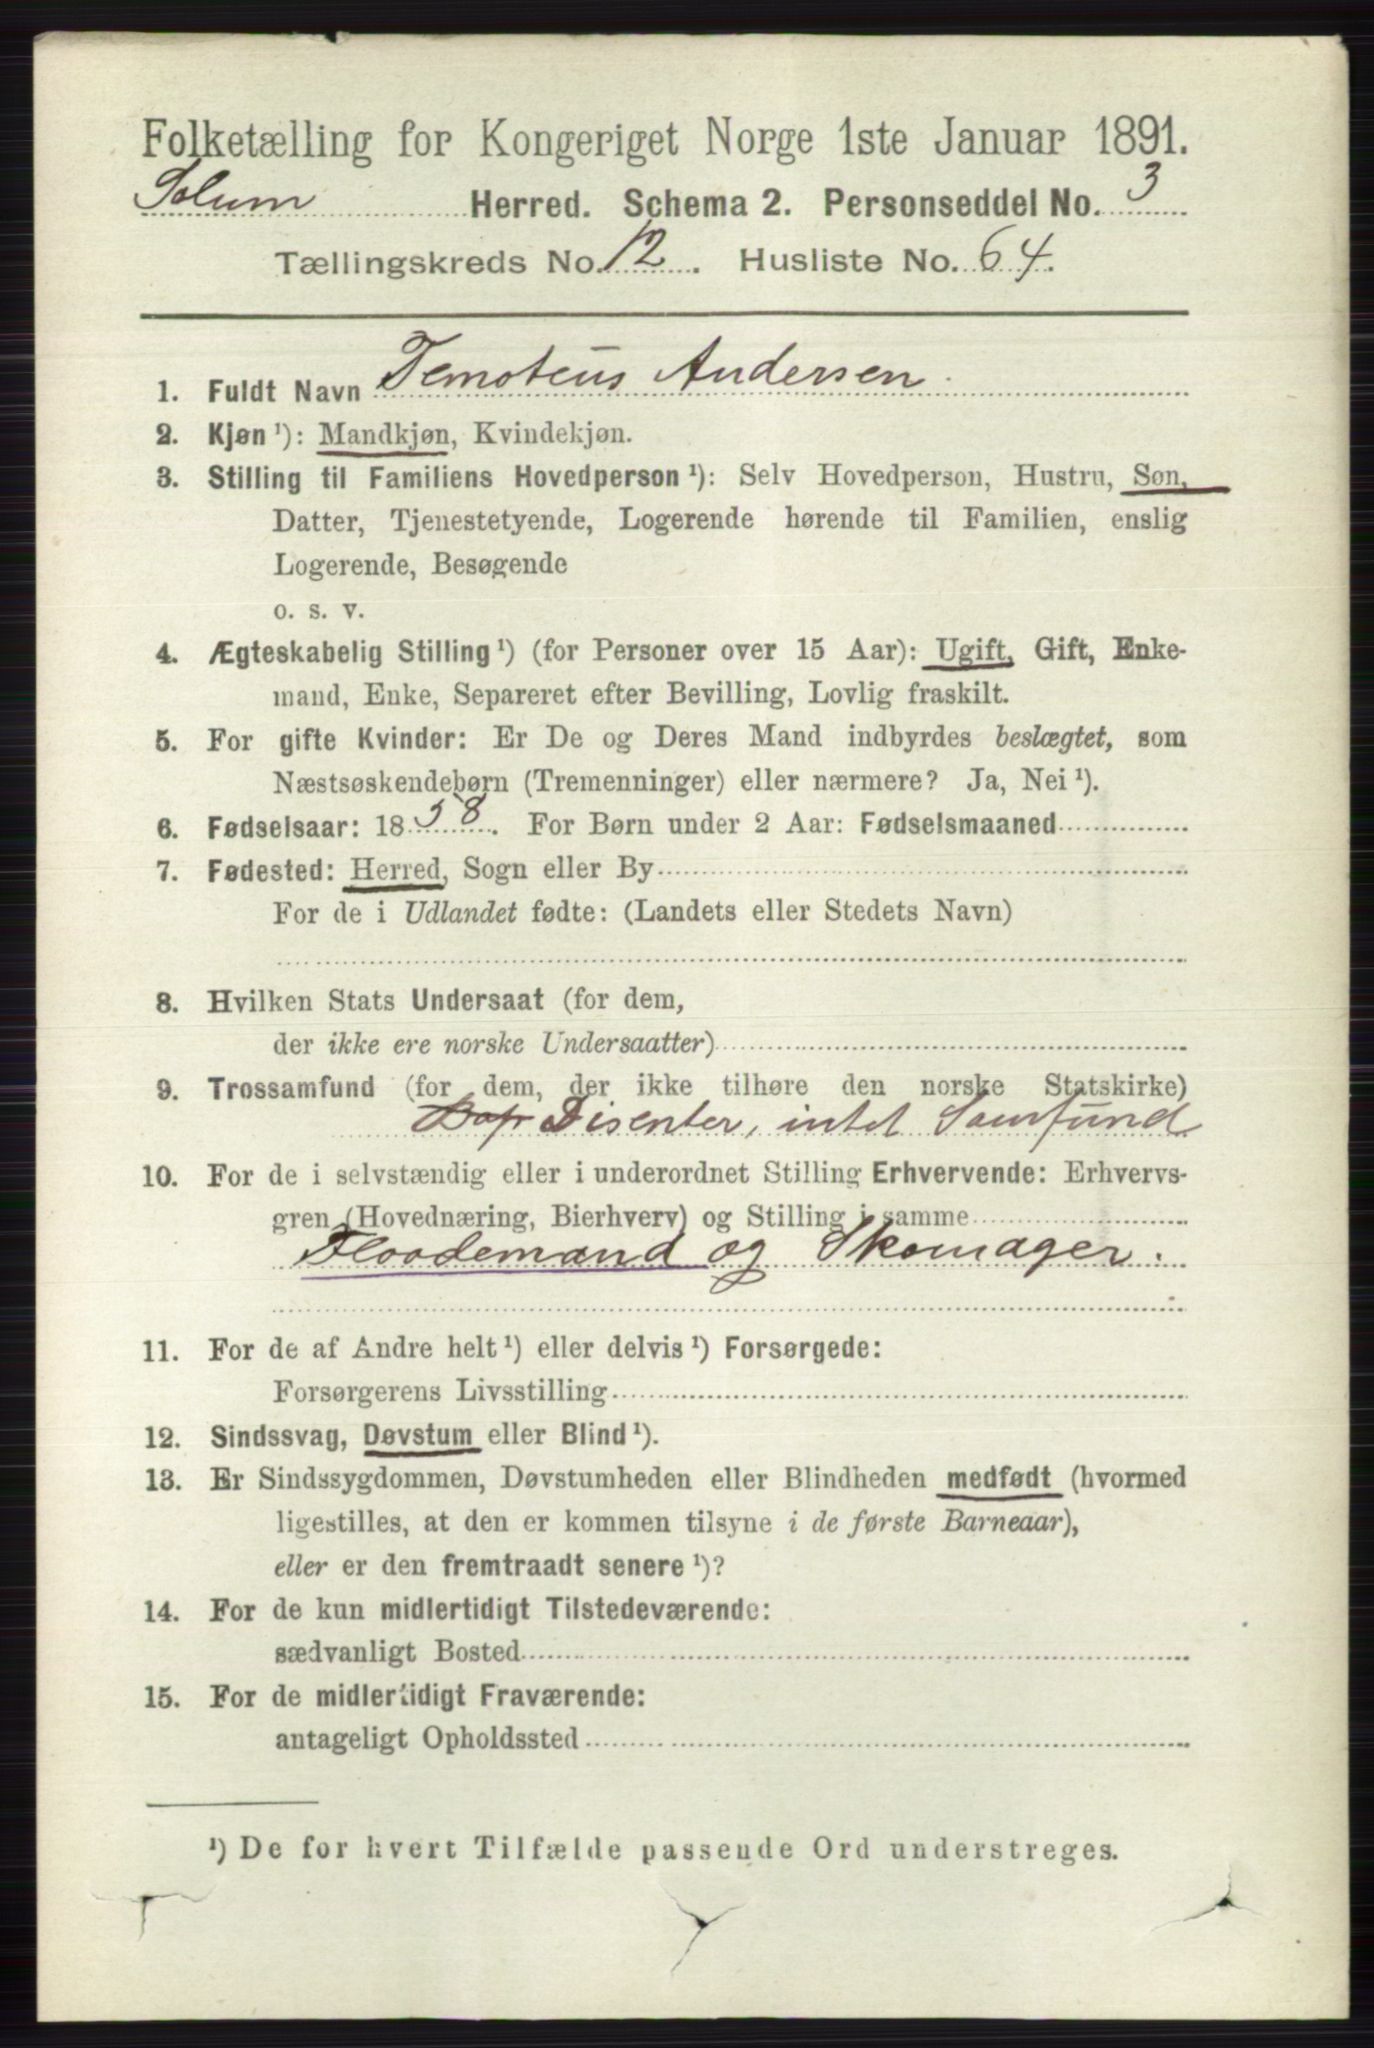 Folketælling for Kongeriget Norge 1ste Januar 1891.
Solum Herred. Schema 2. Personseddel No. 3
Tællingskreds No. 12. Husliste No. 64.
1. Fuldt Navn Temoteus Andersen.
2. Kjøn ¹): Mandkjøn, Kvindekjøn.
3. Stilling til Familiens Hovedperson ¹): Selv Hovedperson, Hustru, Søn,
Datter, Tjenestetyende, Logerende hørende til Familien, enslig
Logerende, Besøgende
o. s. v.
4. Ægteskabelig Stilling ¹) (for Personer over 15 Aar): Ugift, Gift, Enke-
mand, Enke, Separeret efter Bevilling, Lovlig fraskilt.
5. For gifte Kvinder: Er De og Deres Mand indbyrdes beslægtet, som
Næstsøskendebørn (Tremenninger) eller nærmere? Ja, Nei ¹).
6. Fødselsaar: 1858. For Børn under 2 Aar: Fødselsmaaned
7. Fødested: Herred, Sogn eller By
For de i Udlandet fødte: (Landets eller Stedets Navn)
8. Hvilken Stats Undersaat (for dem,
der ikke ere norske Undersaatter)
9. Trossamfund (for dem, der ikke tilhøre den norske Statskirke)
Bap Disenter, intet Samfund
10. For de i selvstændig eller i underordnet Stilling Erhvervende: Erhvervs-
gren (Hovednæring, Bierhverv) og Stilling i samme
Floodemand og Skomager.
11. For de af Andre helt ¹) eller delvis ¹) Forsørgede:
Forsørgerens Livsstilling
12. Sindssvag, Døvstum eller Blind ¹).
13. Er Sindssygdommen, Døvstumheden eller Blindheden medfødt (hvormed
ligestilles, at den er kommen tilsyne i de første Barneaar),
eller er den fremtraadt senere ¹)?
14. For de kun midlertidigt Tilstedeværende:
sædvanligt Bosted
15. For de midlertidigt Fraværende:
antageligt Opholdssted
¹) De for hvert Tilfælde passende Ord understreges.